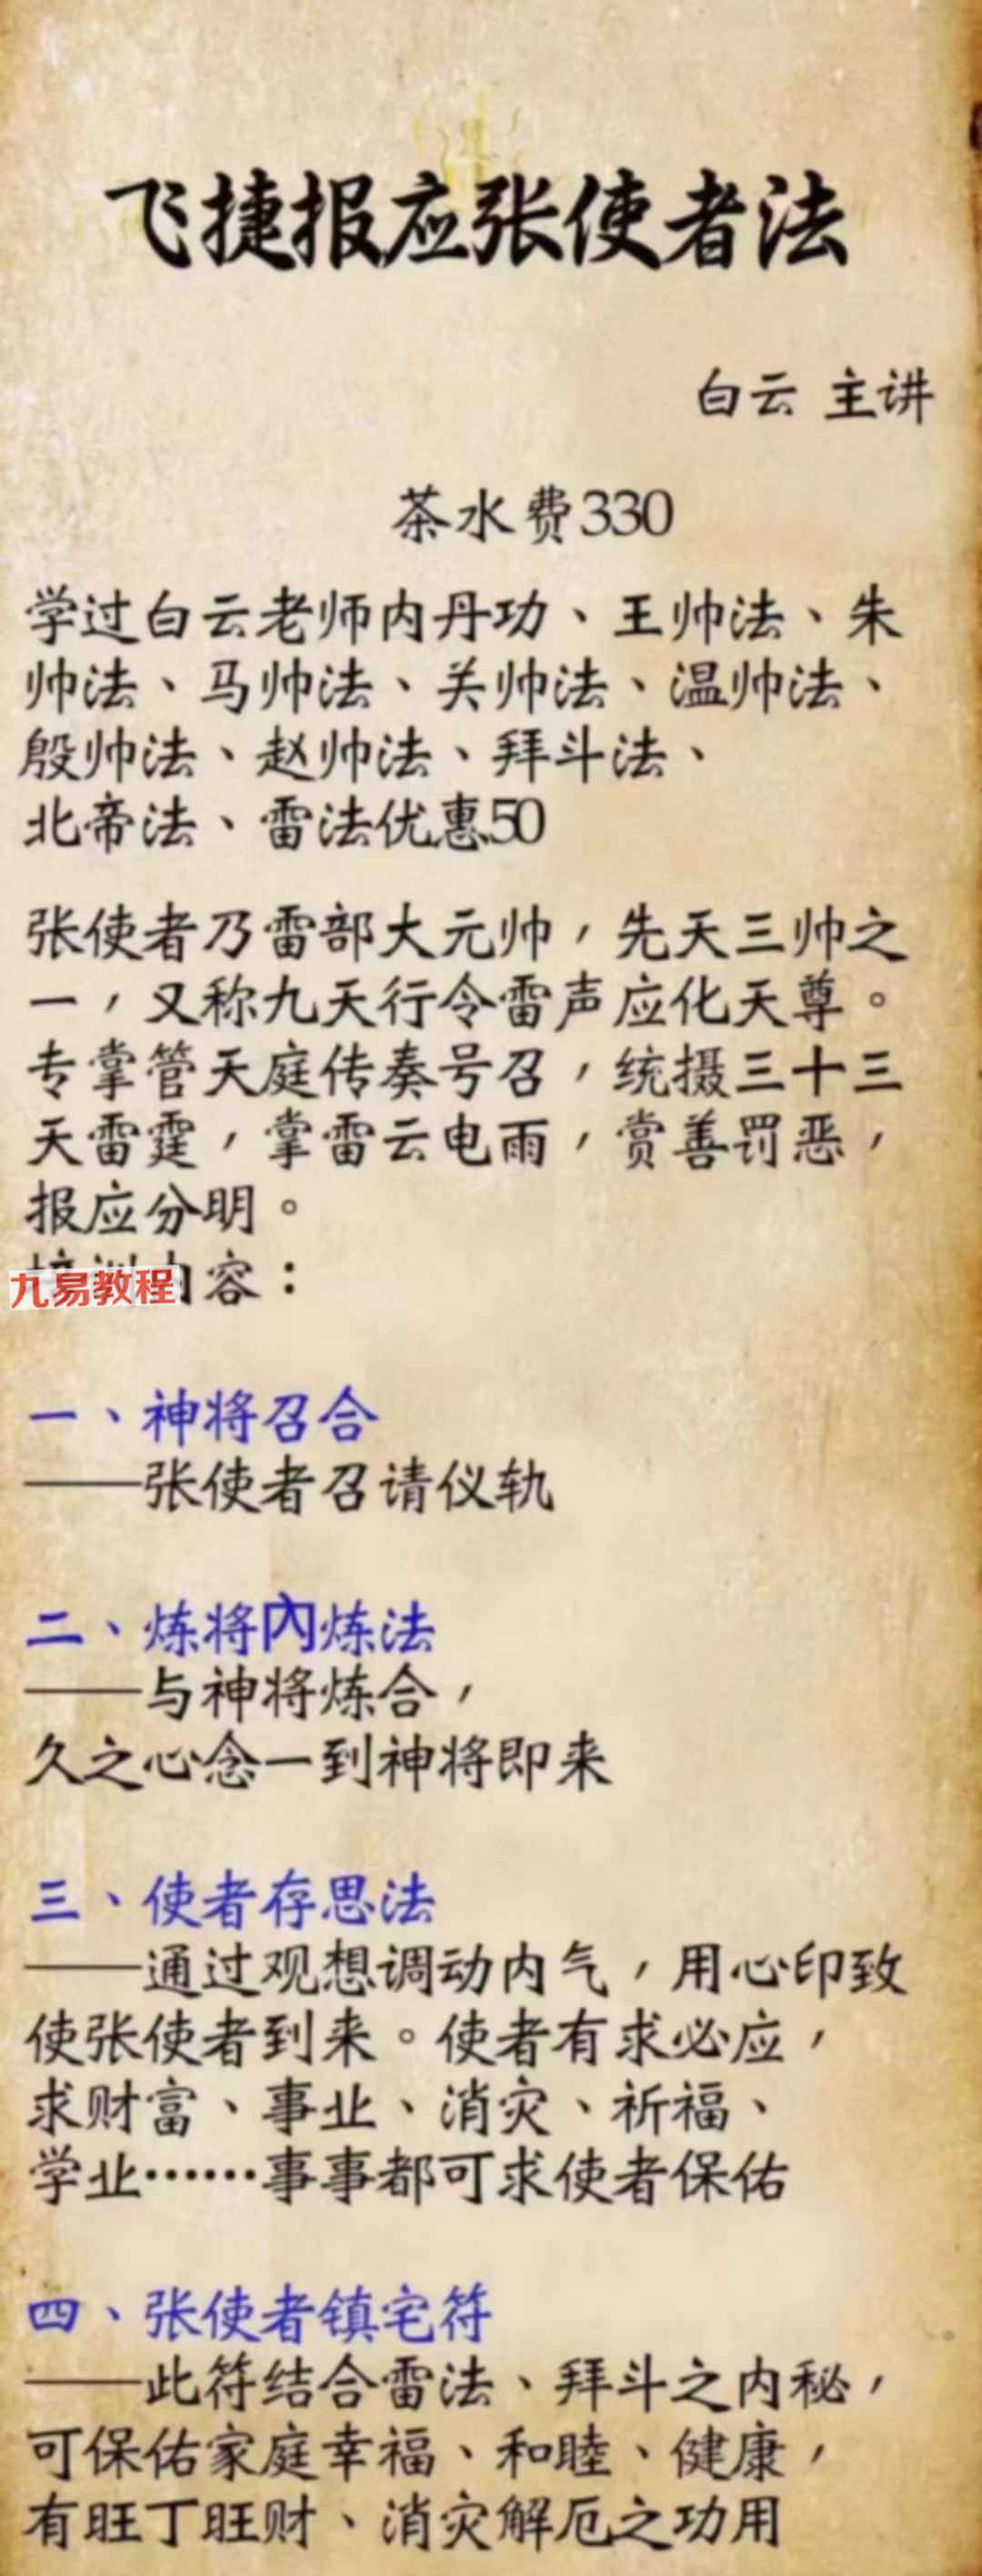 飞捷报应张使者法
白云 主讲
茶水费330
学过白云老师内丹功、王帅法、朱
帅法、马帅法、关帅法、温帅法、
殷帅法、赵帅法、拜斗法、
北帝法、雷法优惠50
张使者乃雷部大元帅，先天三帅之
一，又称九天行令雷声应化天尊。
专掌管天庭传奏号召，统摄三十三
天雷霆，掌雷云电雨，赏善罚恶，
报应分明。
容：
九易教程
一、神将召合
——张使者召请仪轨
二、炼将內炼法
——与神将炼合，
久之心念一到神将即来
三、使者存思法
——通过观想调动内气，用心印致
使张使者到来。使者有求必应，
求财富、事业、消灾、祈福、
学业……事事都可求使者保佑
四、张使者镇宅符
——此符结合雷法、拜斗之内秘，
可保佑家庭幸福、和睦、健康，
有旺丁旺财、消灾解厄之功用